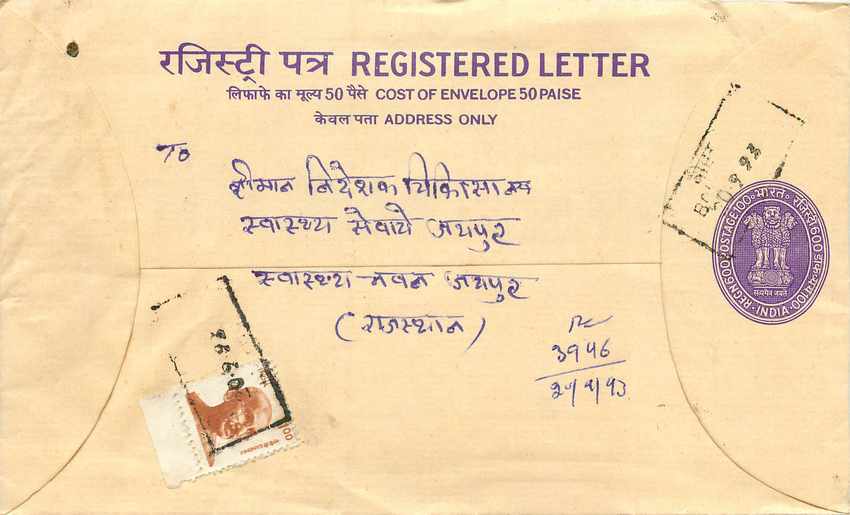 रजिस्ट्री पत्र REGISTERED LETTER
लिफाफे का मूल्य 50 पैसे COST OF ENVELOPE 50 PAISE
केवल पता ADDRESS ONLY
To
श्रीमान निदेशक चिकित्सा एवं
स्वास्थ्य सेवाये जयपुर
स्वास्थ्य भवन जयपुर
(राजस्थान)
3946
REGN 600 POSTAGE 100 भारत रजिस्ट्री 600 डाक-व्यय 100 INDIA
सत्यमेव जयते
100